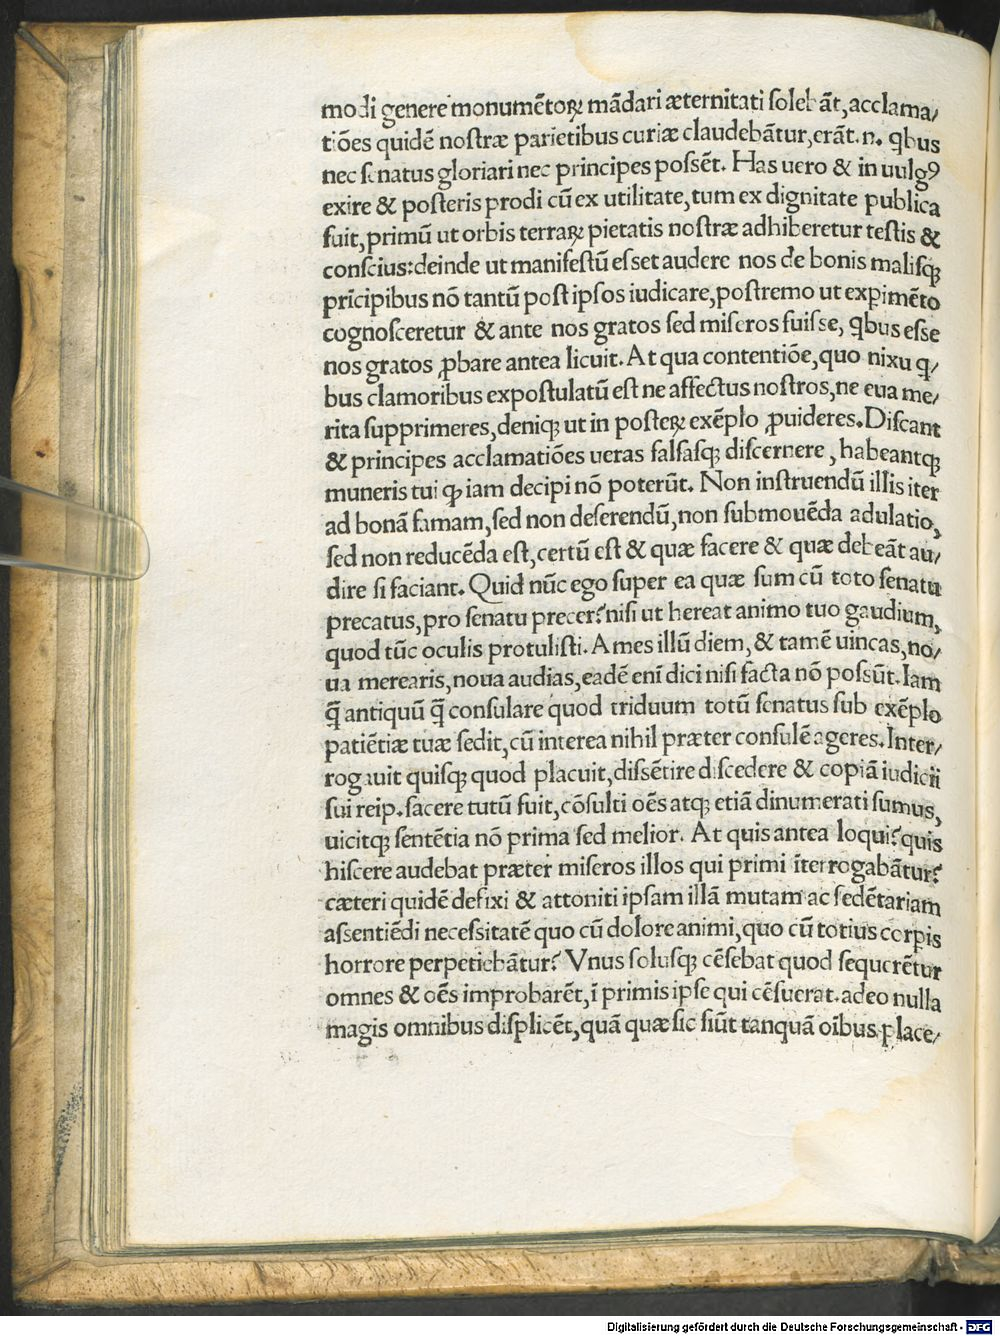 modi genere monumẽtoꝝ mãdari æternitati ſolebãt,acclama/
tiões quidẽ noſtræ parietibus curiæ claudebãtur,erãt.n. q̃bus
nec ſenatus gloriari nec principes poſſẽt. Has uero & in uulgꝰ
exire & poſteris prodi cũ ex utilitate,tum ex dignitate publica
fuit,primũ ut orbis terraꝝ pietatis noſtræ adhiberetur teſtis &
conſcius:deinde ut manifeſtũ eſset audere nos de bonis maliſqꝫ
prĩcipibus nõ tantũ poſt ipſos iudicare,poſtremo ut expimẽto
cognoſceretur & ante nos gratos ſed miſeros fuiſse, q̃bus eſse
nos gratos ꝓbare antea licuit. At qua contentiõe,quo nixu q̃/
bus clamoribus expoſtulatũ eſt ne affectus noſtros,ne tua me/
rita ſupprimeres,deniqꝫ ut in poſteꝝ exẽplo ꝓuideres.Diſcant
& principes acclamatiões ueras falſaſqꝫ diſcernere , habeantqꝫ
muneris tui ꝙ iam decipi nõ poterũt. Non inſtruendũ illis iter
ad bonã famam,ſed non deſerendũ,non ſubmouẽda adulatio,
ſed non reducẽda eſt,certũ eſt & quæ facere & quæ debeãt au/
dire ſi faciant. Quid nũc ego ſuper ea quæ ſum cũ toto ſenatu
precatus,pro ſenatu precer?niſi ut hereat animo tuo gaudium,
quod tũc oculis protuliſti. Ames illũ diem, & tamẽ uincas,no/
ua merearis,noua audias,eadẽ enĩ dici niſi facta nõ poſsũt.Iam
q̃ antiquũ q̃ conſulare quod triduum totũ ſenatus ſub exẽplo
patiẽtiæ tuæ ſedit,cũ interea nihil præter conſulẽ ageres.Inter/
rogauit quiſqꝫ quod placuit,diſsẽtire diſcedere & copiã iudicii
ſui reip.facere tutũ fuit,cõſulti oẽs atqꝫ etiã dinumerati ſumus,
uicitqꝫ ſentẽtia nõ prima ſed melior. At quis antea loqui?quis
hiſcere audebat præter miſeros illos qui primi ĩterrogabãtur?
cæteri quidẽ defixi & attoniti ipſam illã mutam ac ſedẽtariam
aſsentiẽdi neceſsitatẽ quo cũ dolore animi,quo cũ totius corpis
horrore perpetiebãtur? Vnus ſoluſqꝫ cẽſebat quod ſequerẽtur
omnes & oẽs improbarẽt,ĩ primis ipſe qui cẽſuerat.adeo nulla
magis omnibus diſplicẽt,quã quæ ſic fiũt tanquã oĩbus place/
Digitalisierung gefördert durch die Deutsche Forschungsgemeinschaft - DFG